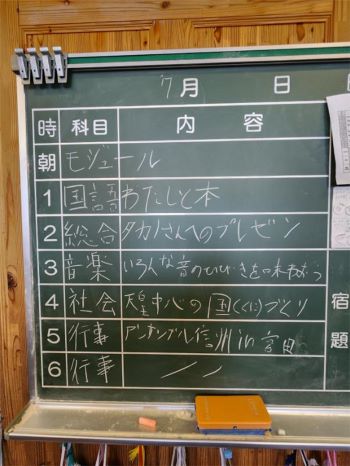 7月 日
時 科目 内容
朝 モジュール
1 国語 わたしと本
2 総合 タカノさんへのプレゼン
3 音楽 いろんな音のひびきを味わおう
4 社会 天皇中心の国(くに)づくり
5 行事 アンサンブル信州in宮田
6 行事 〃
宿題